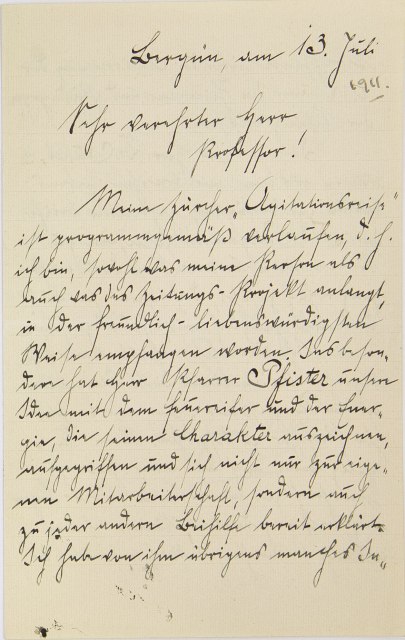 Bergün, am 13. Juli
1911.
Sehr verehrter Herr
Professor!
Meine Zürcher „Agitationsreise“
ist programmgemäß verlaufen, d. h.
ich bin, sowohl was meine Person als
auch was das Zeitungs-Projekt anlangt,
in der freundlich-liebenswürdigsten
Weise empfangen worden. Insbeson-
dere hat Herr Pfarrer Pfister unsere
Idee mit dem Feuereifer und der Ener-
gie, die seinen Charakter auszeichnen,
aufgegriffen und sich nicht nur zur eige-
nen Mitarbeiterschaft, sondern auch
zu jeder andern Beihilfe bereit erklärt.
Ich habe von ihm übrigens manches In-